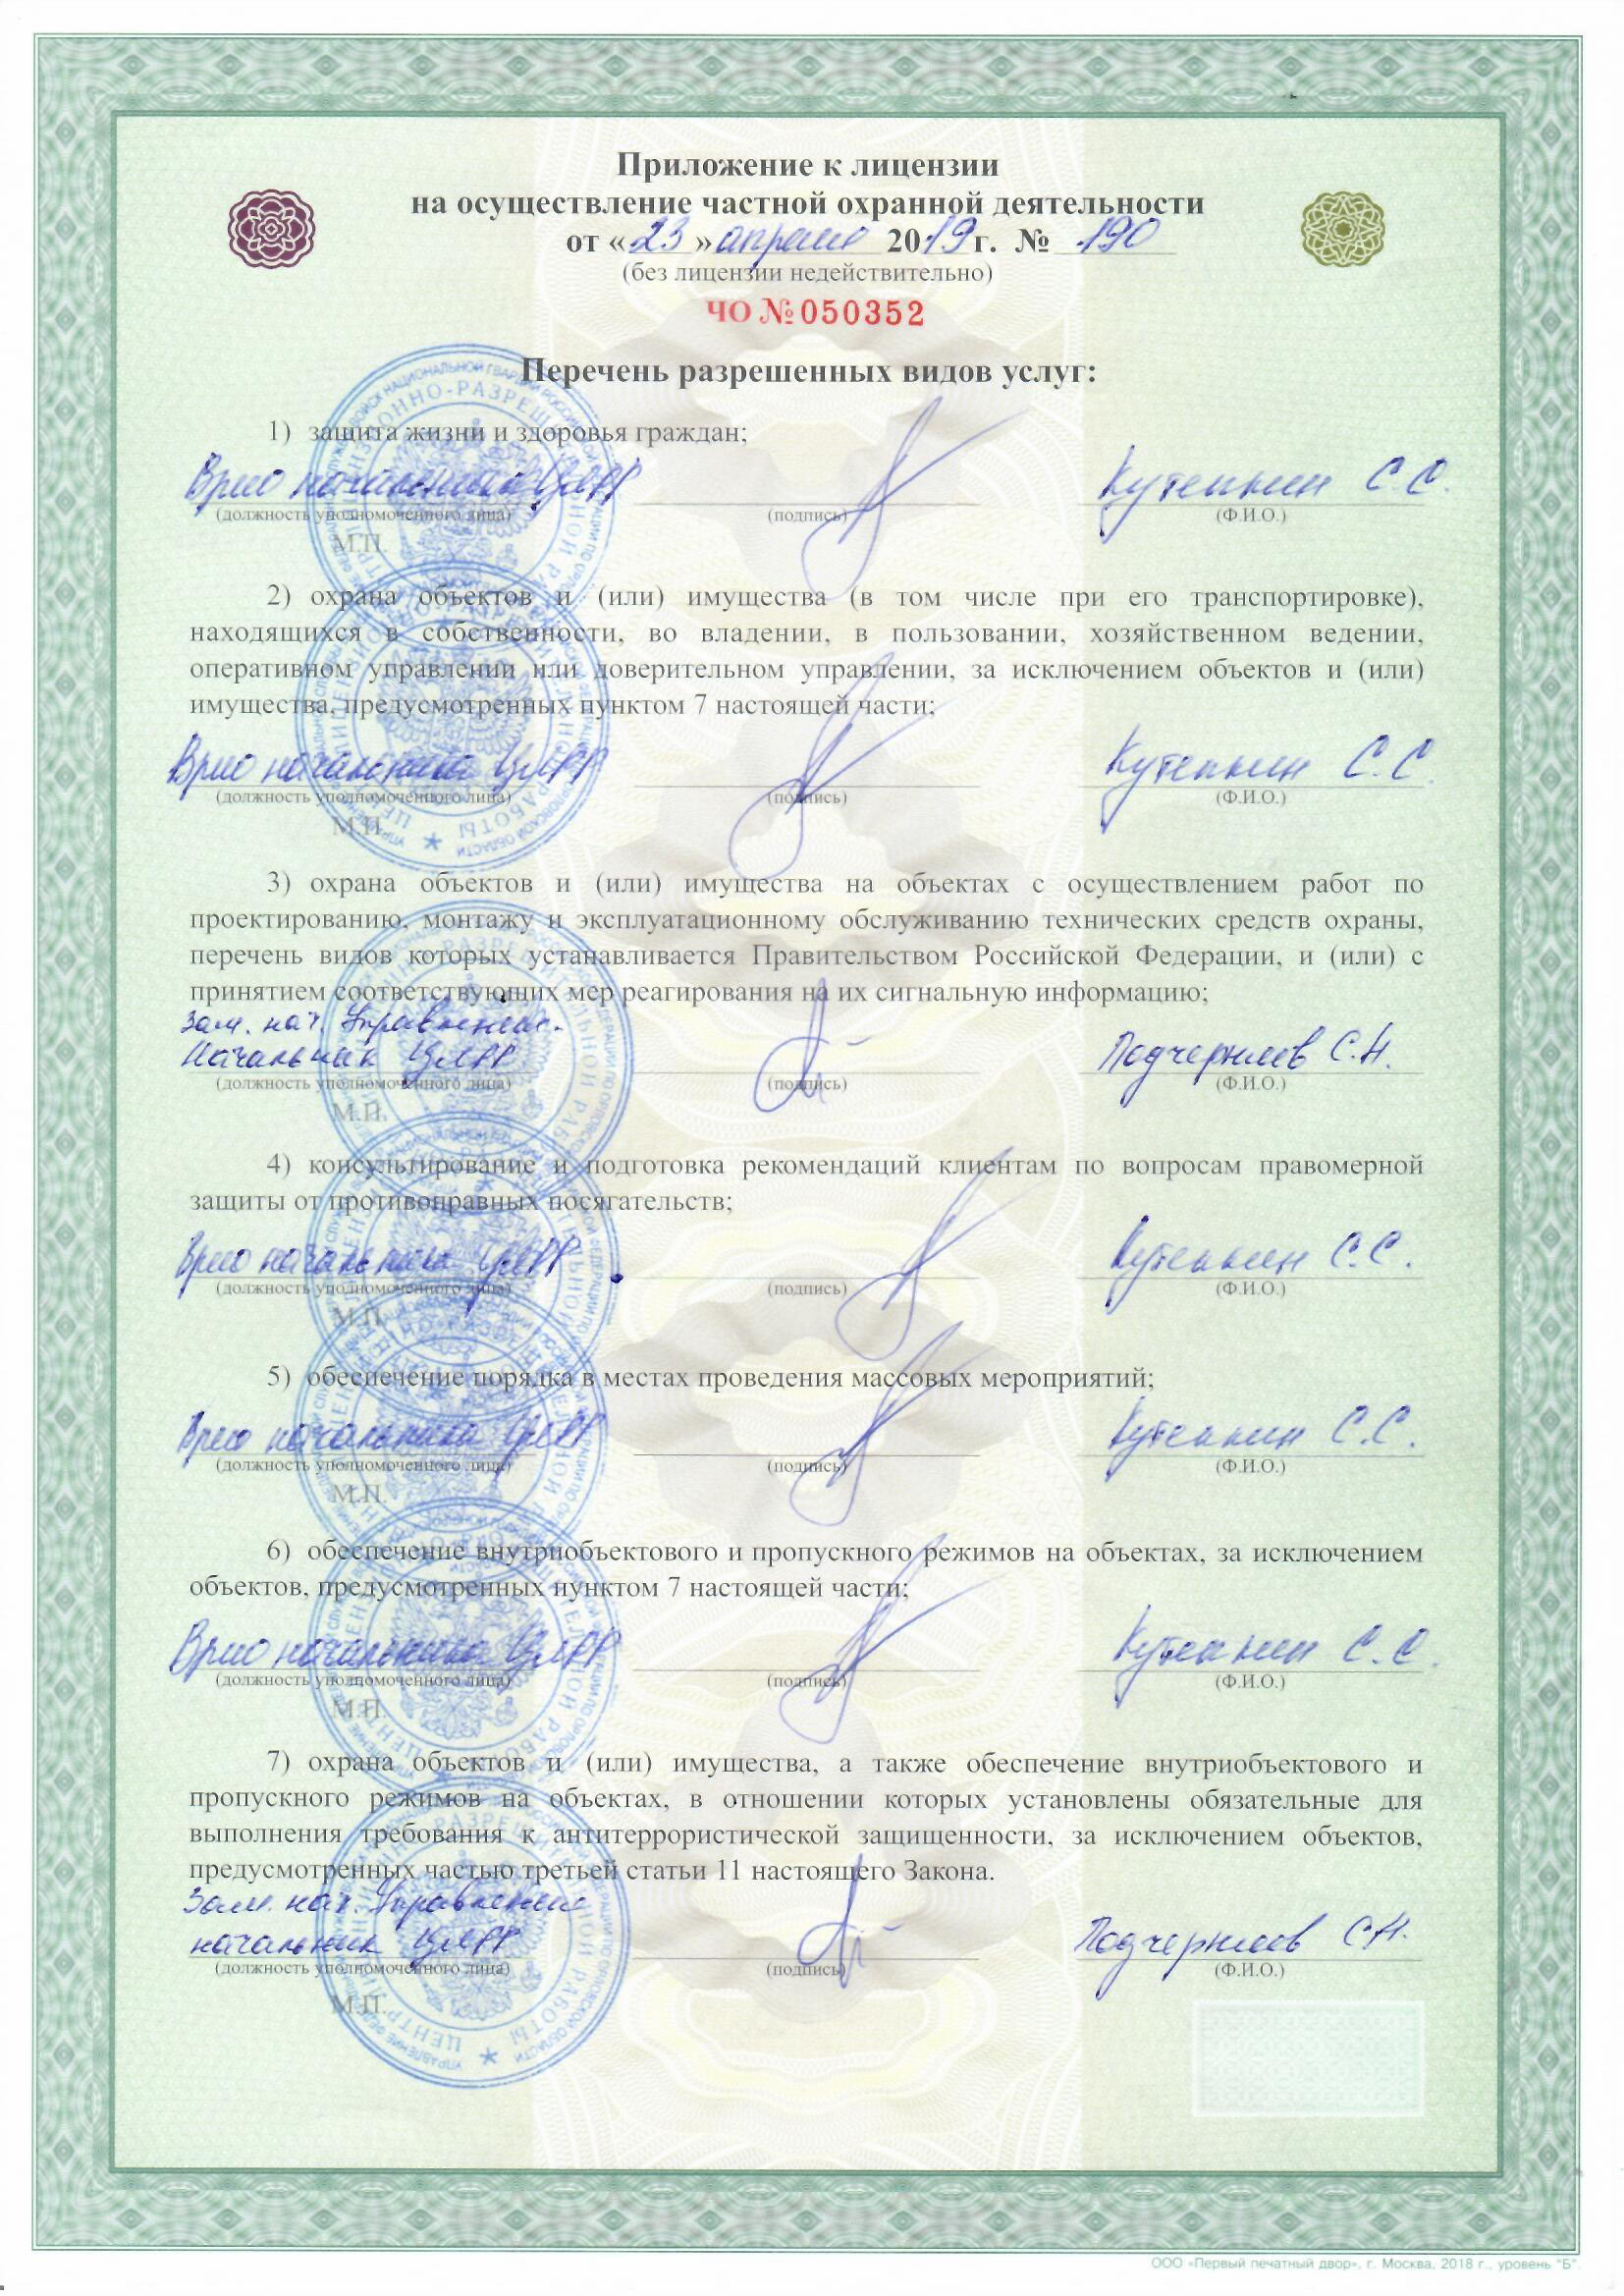 Приложение к лицензии
на осуществление частной охранной деятельности
от «23» апреля 2019 г. № 190
(без лицензии недействительно)
ЧО № 050352
Перечень разрешенных видов услуг:
1) защита жизни и здоровья граждан;
Врио начальника ЦЛРР Кутепкин С.С.
(должность уполномоченного лица) (подпись) (Ф.И.О.)
М.П.
2) охрана объектов и (или) имущества (в том числе при его транспортировке),
находящихся в собственности, во владении, в пользовании, хозяйственном ведении,
оперативном управлении или доверительном управлении, за исключением объектов и (или)
имущества, предусмотренных пунктом 7 настоящей части;
Врио начальника ЦЛРР Кутепкин С.С.
(должность уполномоченного лица) (подпись) (Ф.И.О.)
М.П.
3) охрана объектов и (или) имущества на объектах с осуществлением работ по
проектированию, монтажу и эксплуатационному обслуживанию технических средств охраны,
перечень видов которых устанавливается Правительством Российской Федерации, и (или) с
принятием соответствующих мер реагирования на их сигнальную информацию;
Зам. нач. Управления-
Начальник ЦЛРР Подчерняев С.Н.
(должность уполномоченного лица) (подпись) (Ф.И.О.)
М.П.
4) консультирование и подготовка рекомендаций клиентам по вопросам правомерной
защиты от противоправных посягательств;
Врио начальника ЦЛРР Кутепкин С.С.
(должность уполномоченного лица) (подпись) (Ф.И.О.)
М.П.
5) обеспечение порядка в местах проведения массовых мероприятий;
Врио начальника ЦЛРР Кутепкин С.С.
(должность уполномоченного лица) (подпись) (Ф.И.О.)
М.П.
6) обеспечение внутриобъектового и пропускного режимов на объектах, за исключением
объектов, предусмотренных пунктом 7 настоящей части;
Врио начальника ЦЛРР Кутепкин С.С.
(должность уполномоченного лица) (подпись) (Ф.И.О.)
М.П.
7) охрана объектов и (или) имущества, а также обеспечение внутриобъектового и
пропускного режимов на объектах, в отношении которых установлены обязательные для
выполнения требования к антитеррористической защищенности, за исключением объектов,
предусмотренных частью третьей статьи 11 настоящего Закона.
Зам. нач. Управления
начальник ЦЛРР Подчерняев С.Н.
(должность уполномоченного лица) (подпись) (Ф.И.О.)
М.П.
ООО «Первый печатный двор», г. Москва, 2018 г., уровень "Б".